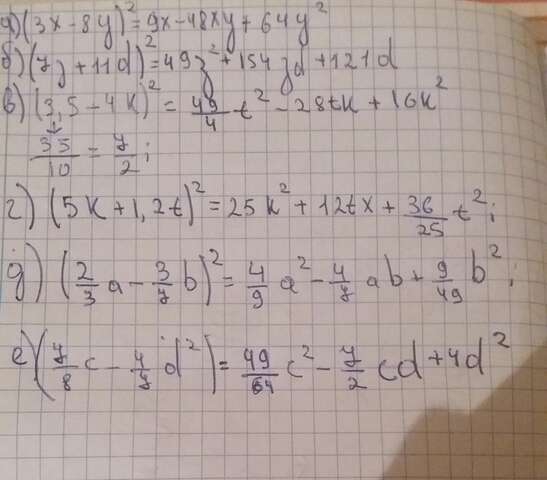 а) (3x - 8y)² = 9x - 48xy + 64y²
б) (7z + 11d)² = 49z² + 154zd + 121d
в) (3,5 - 4k)² = 49/4 t² - 28tk + 16k²
35/10 = 7/2;
г) (5k + 1,2t)² = 25k² + 12tx + 36/25 t²;
д) (2/3 a - 3/7 b)² = 4/9 a² - 4/7 ab + 9/49 b²;
е) (7/8 c - 4/7 d²) = 49/64 c² - 7/2 cd + 4d²